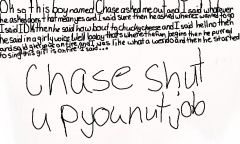 Oh so this boy named Chase asked me out and I said whatever
he asked does that mean yes and I said sure then he asked where wanted to go
I said IDK then he said how bout to chuckycheese and I said hell no then
he said in a girly voice Well baby that's where the fun begins then he purred
and so I and I was like what a weirdo and then he started
to sing this girl is on fire I said...
Chase shut
up you nut job